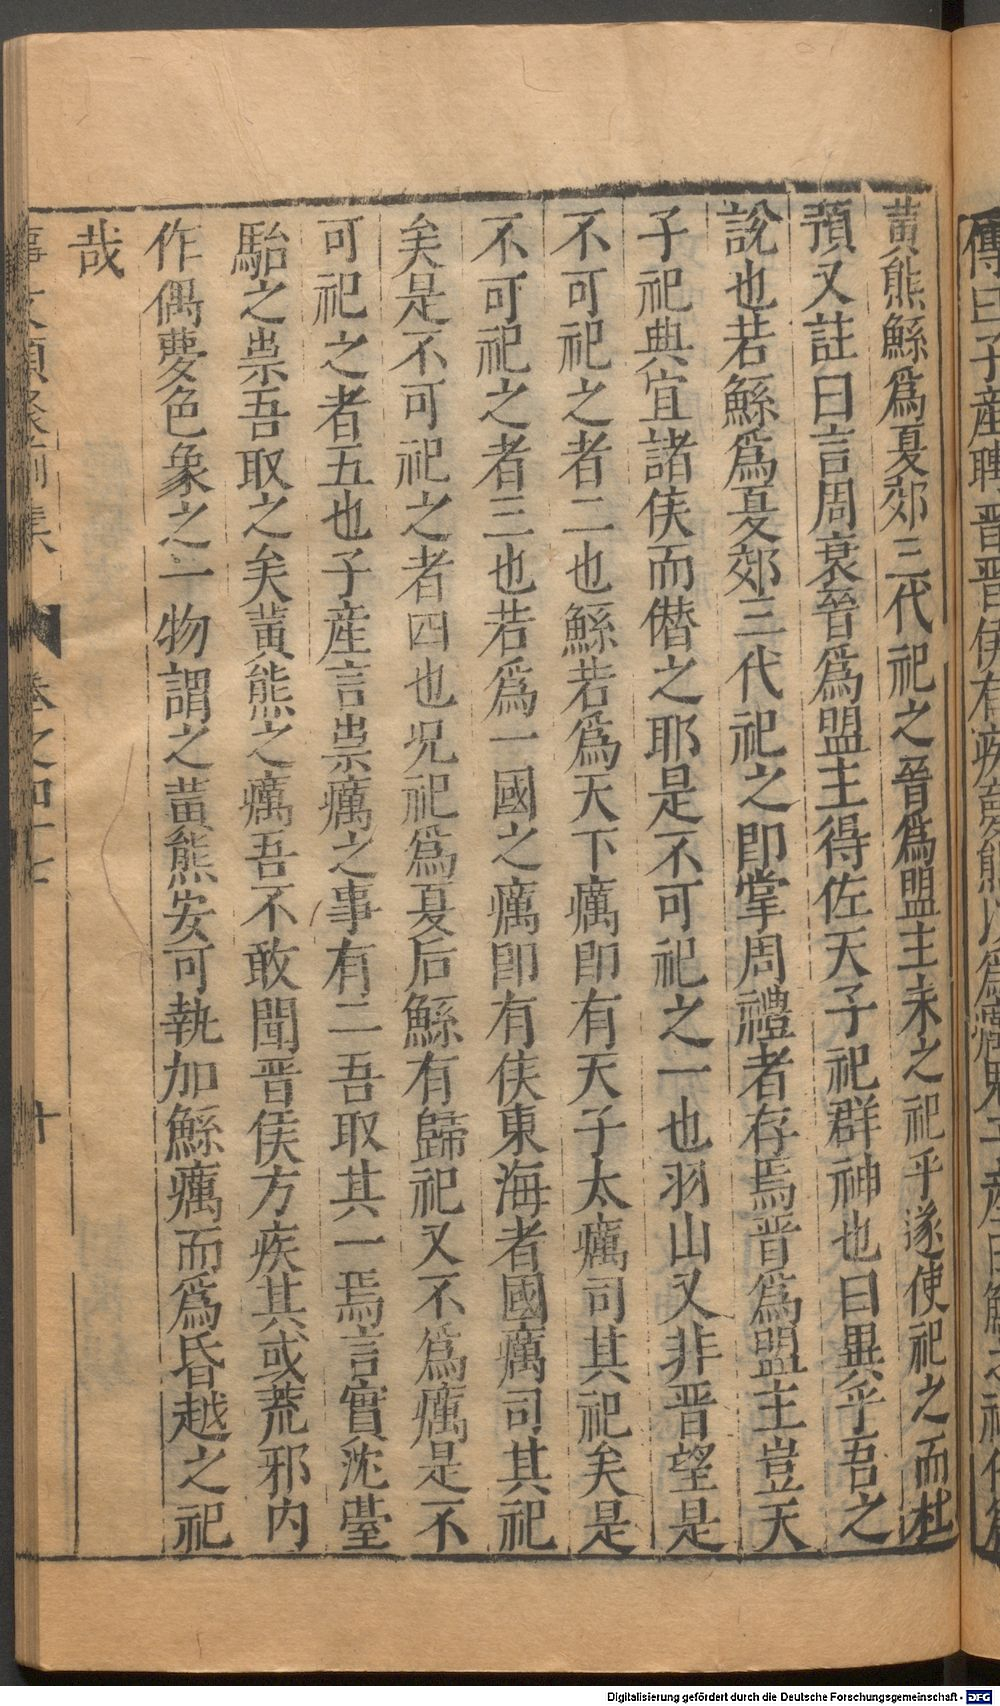 傳曰子產聘晉晉侯有疾夢熊以爲癘鬼子產曰
黃熊鯀爲夏郊三代祀之晉爲盟主未之祀乎遂使祀之而杜
預又註曰言周衰晉爲盟主得佐天子祀群神也曰異乎吾之
說也若鯀爲夏郊三代祀之即掌周禮者存焉晉爲盟主豈天
子祀典宜諸侯而僣之耶是不可祀之一也羽山又非晋望是
不可祀之者二也鯀若爲天下癘即有天子太癘司其祀矣是
不可祀之者三也若爲一國之癘即有侯東海者國癘司其祀
矣是不可祀之者四也况祀爲夏后鯀有歸祀又不爲癘是不
可祀之者五也子産言祟癘之事有二吾取其一焉言實沈臺
駘之祟吾取之矣黃熊之癘吾不敢聞晋侯方疾其或荒邪内
作偶夢色象之一物謂之黃熊安可執加鯀癘而爲昏越之祀
哉
事文類聚前集 卷之四十七 十
Digitalisierung gefördert durch die Deutsche Forschungsgemeinschaft - DFG